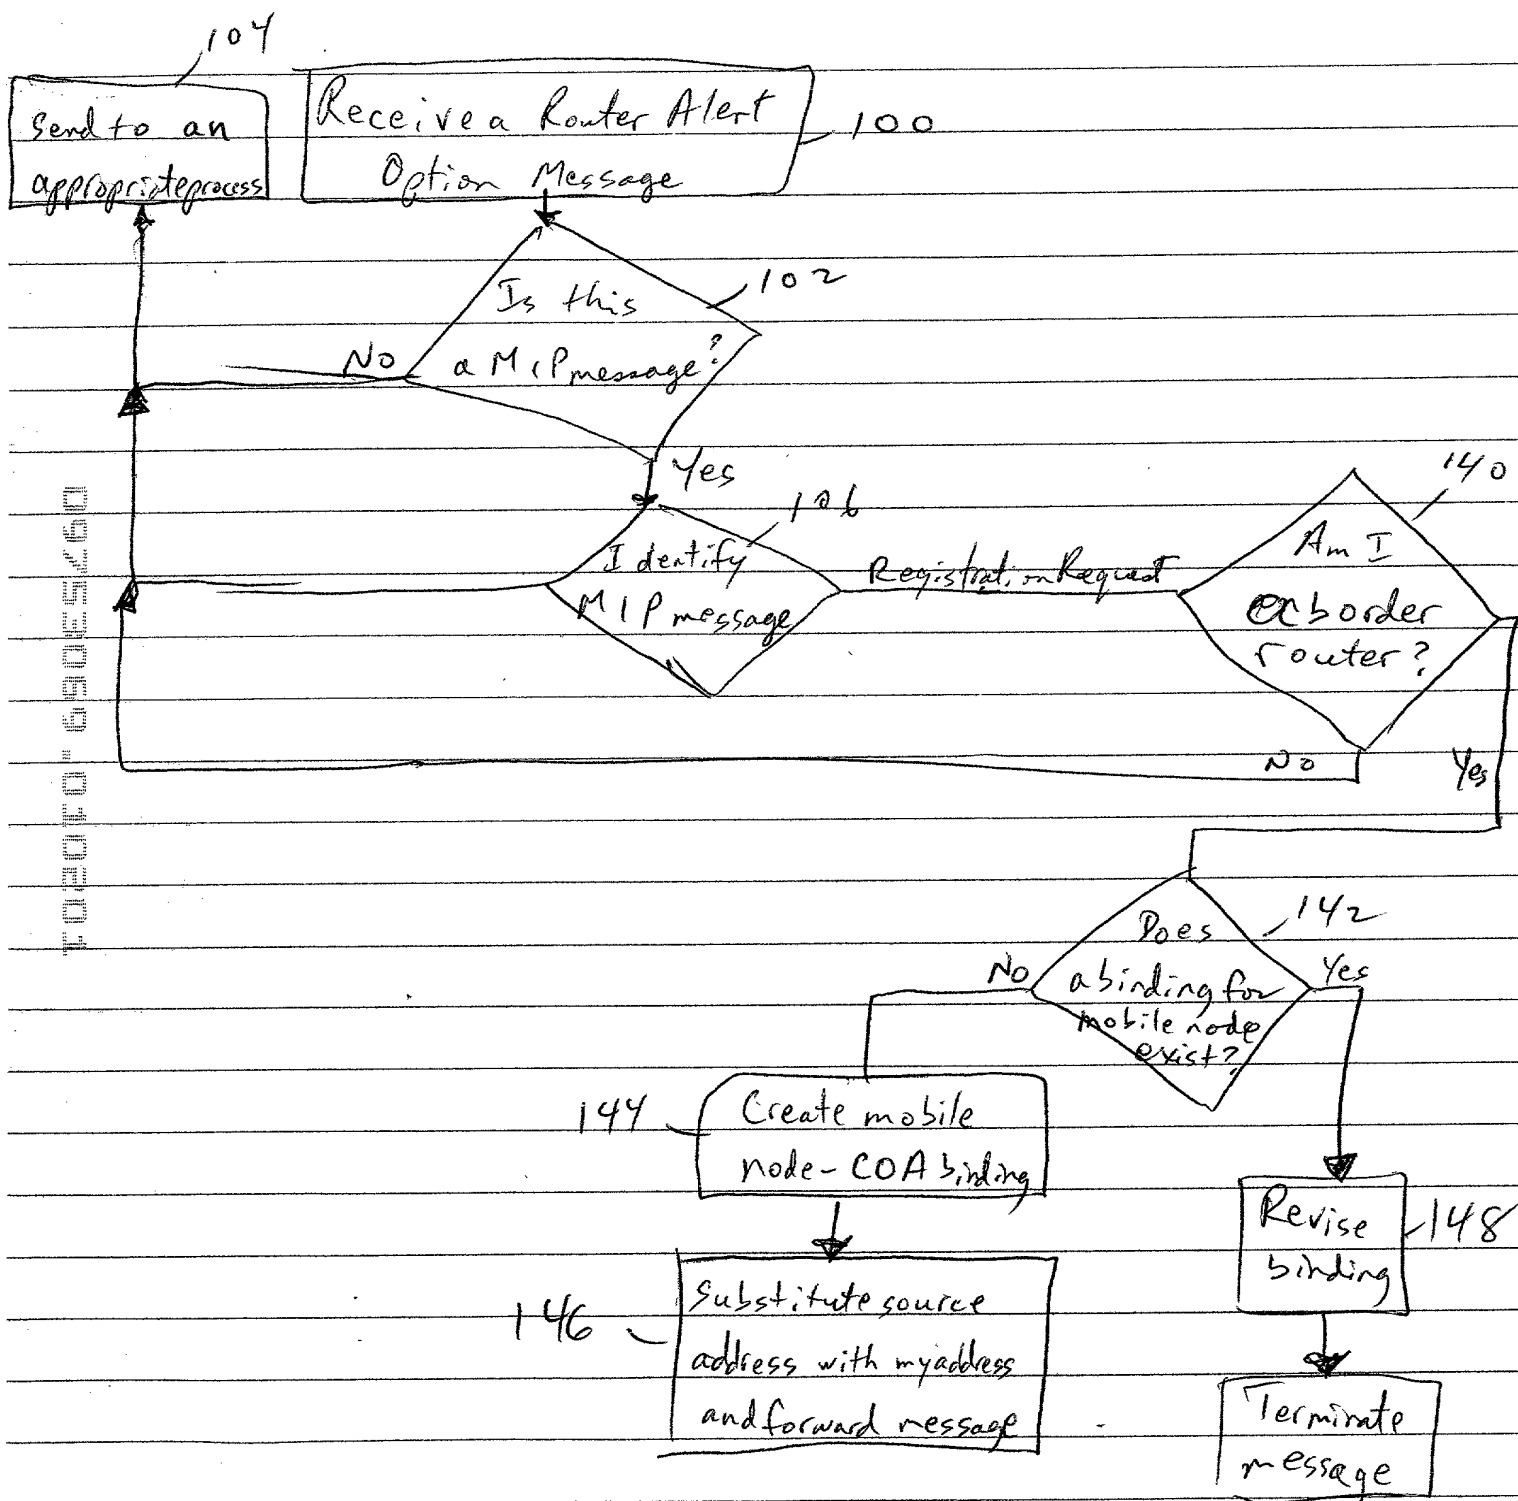 104
Send to an
appropriate process
Receive a Router Alert
Option Message
100
Is this
a MIP message?
102
No
Yes
106
Identify
MIP message
Registration Request
140
Am I
a border
router?
No
Yes
09753069.010201
142
Does
a binding for
mobile node
exist?
No
Yes
144
Create mobile
node-COA binding
Revise
binding
148
146
Substitute source
address with my address
and forward message
Terminate
message